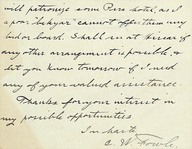 will patronize some Para hotel, as I
a poor "lukyar" cannot offer them my
bed or board. I shall in at        if
any other arrangement is possible, &
let you know tomorrow if I need
any of your valued assistance.
Thanks for your interest in
my possible opportunities
In haste
C. W. Fowle